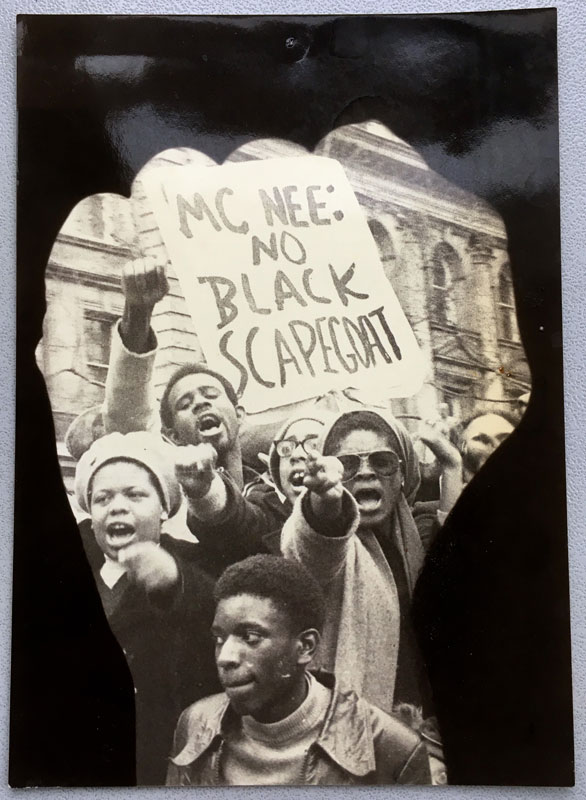 MC NEE:
NO
BLACK
SCAPEGOAT